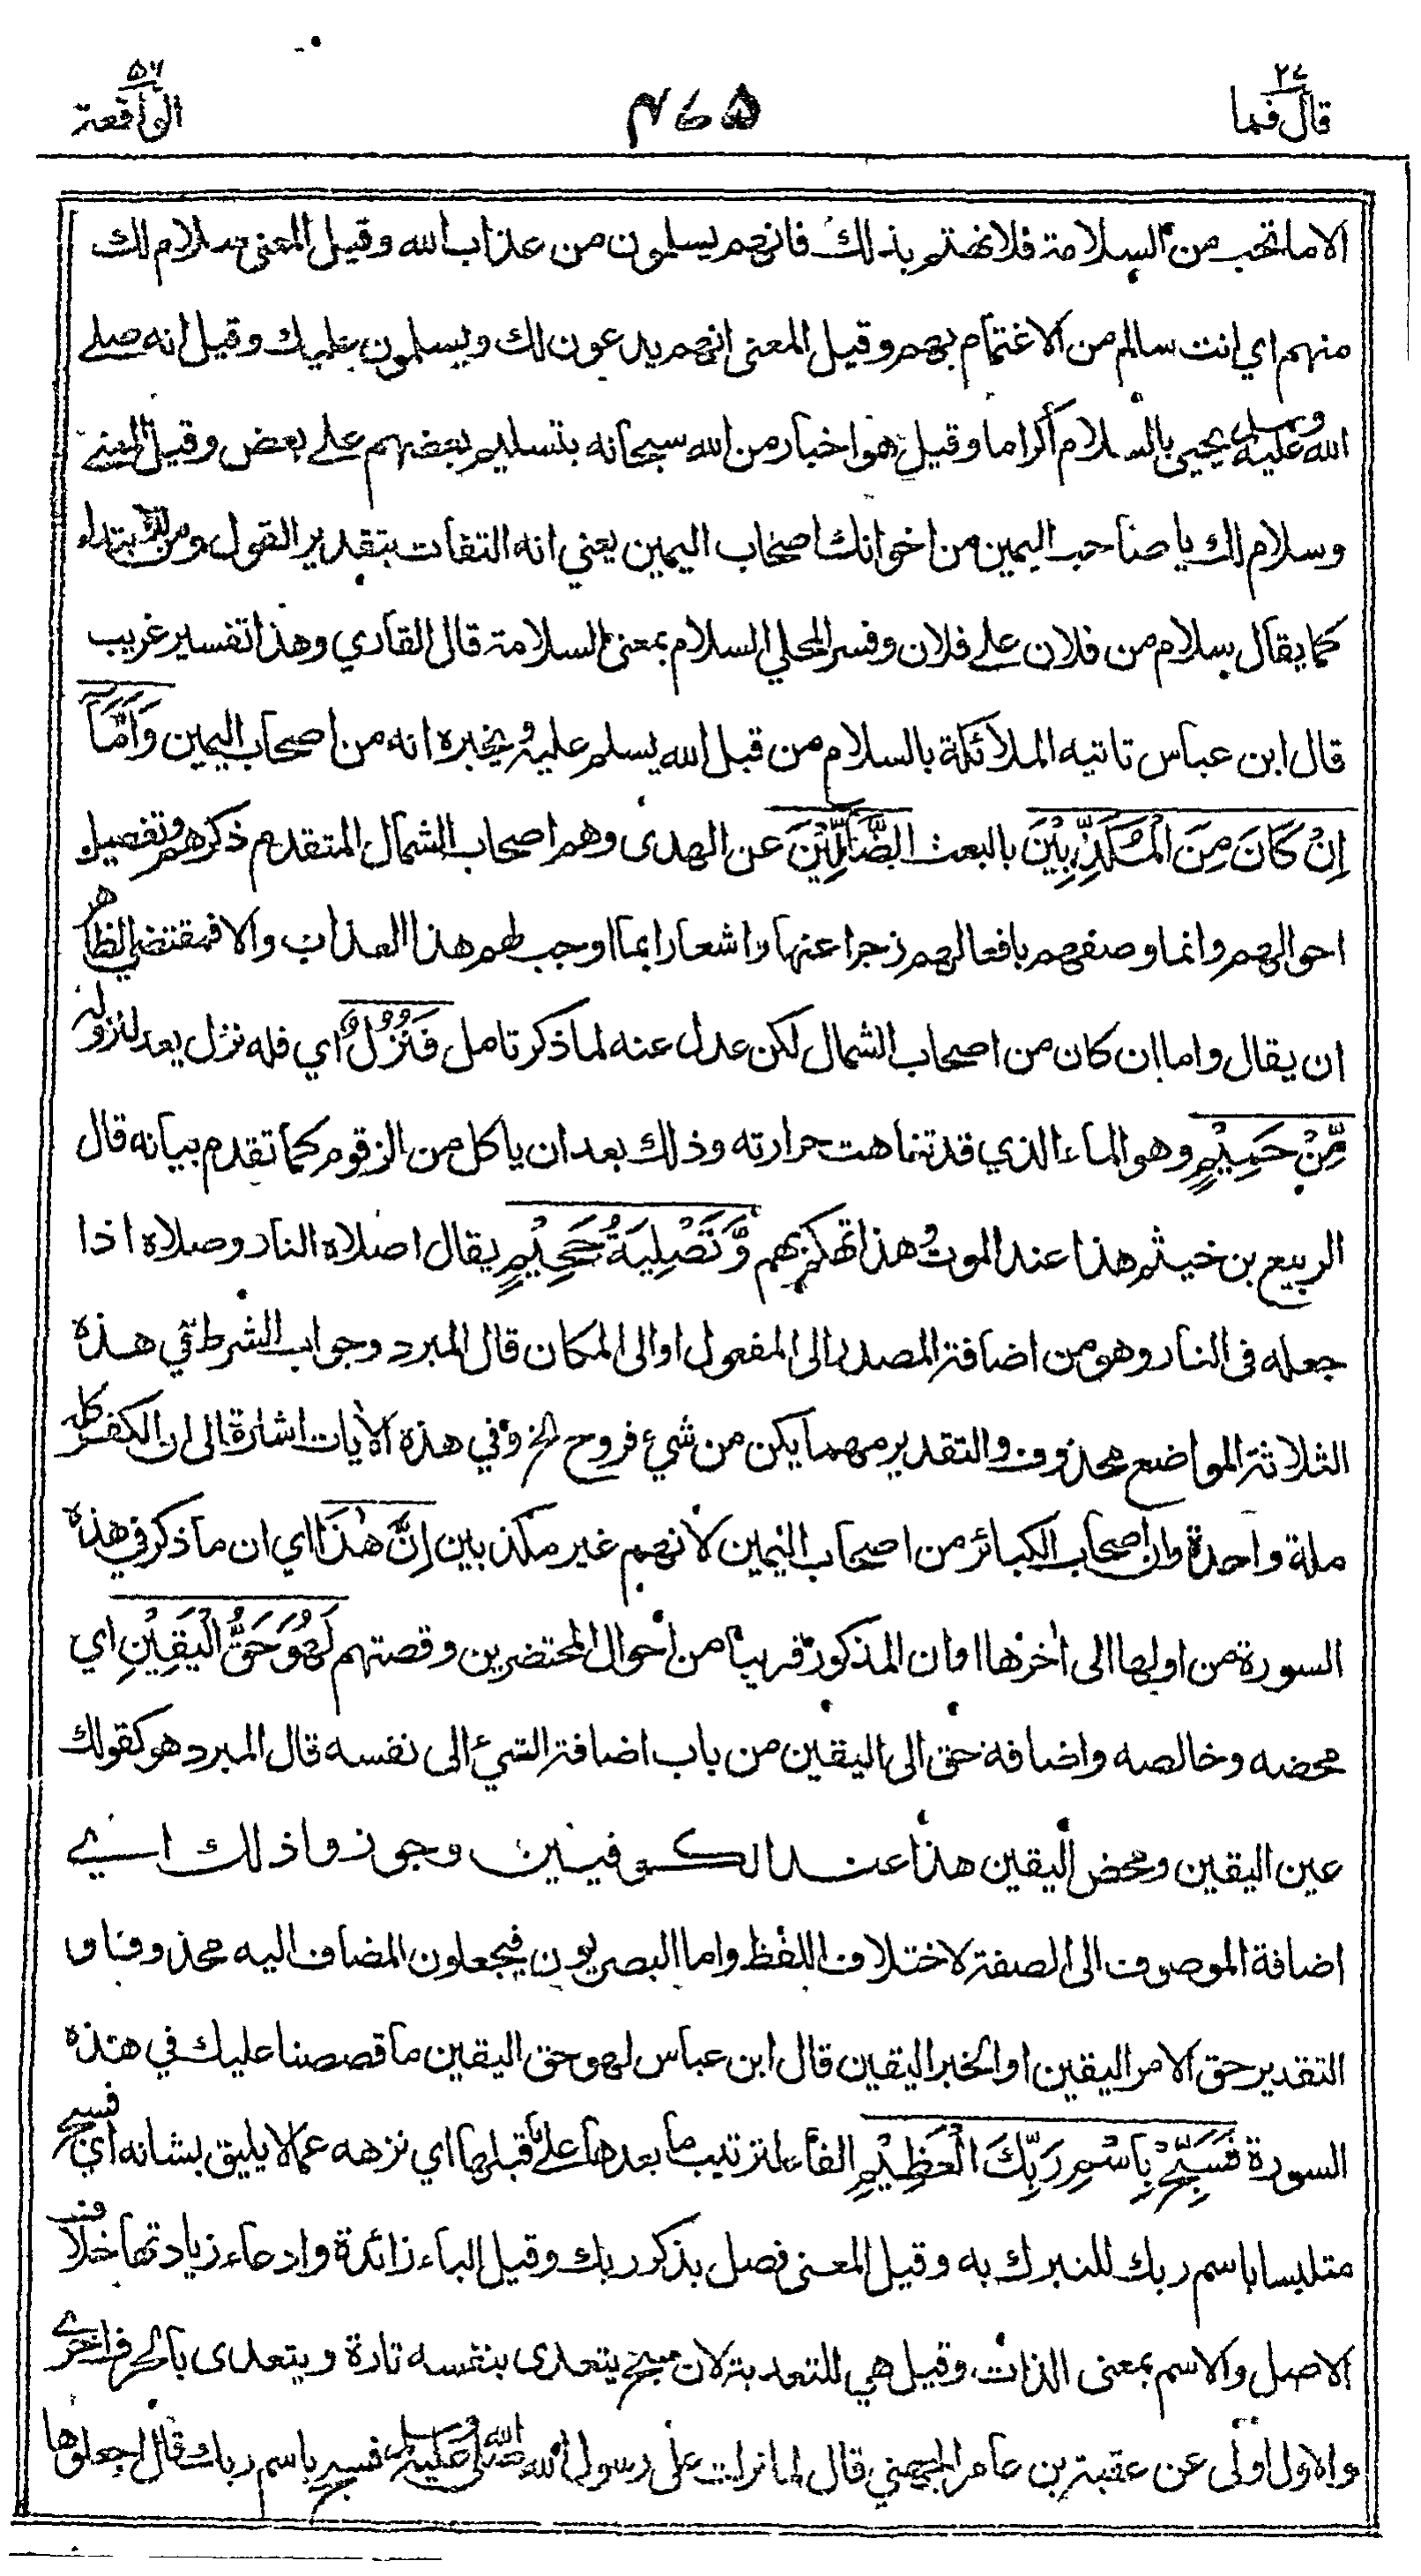 ٢٧ قال فما
٤٦٥
٥٦ الواقعة
الا ما تحب من السلامة فلا تهتم بذلك فانهم يسلمون من عذاب الله وقيل المعنى سلام لك
منهم اي انت سالم من الاغتمام بهم وقيل المعنى انهم يدعون لك ويسلمون عليك وقيل انه صلى
الله عليه وسلم يحيى بالسلام أكراما وقيل هو اخبار من الله سبحانه بتسليم بعضهم على بعض وقيل المعنى
وسلام لك يا صاحب اليمين من اخوانك اصحاب اليمين يعني انه التفات بتقدير القول ومن للابتداء
كما يقال سلام من فلان على فلان وفسر المحلي السلام بمعنى السلامة قال القاري وهذا تفسير غريب
قال ابن عباس تاتيه الملائكة بالسلام من قبل الله يسلم عليه ويخبره انه من اصحاب اليمين وَاَمَّآ
اِنْ كَانَ مِنَ الْمُكَذِّبِيْنَ بالبعث الضَّآلِّيْنَ عن الهدى وهم اصحاب الشمال المتقدم ذكرهم وتفصيل
احوالهم وانما وصفهم بافعالهم زجرا عنها واشعارا بما اوجب لهم هذا العذاب والا فمقتضى الظاهر
ان يقال واما ان كان من اصحاب الشمال لكن عدل عنه لما ذكر تامل فَنُزُلٌ اي فله نزل يعد لنزوله
مِّنْ حَمِيْمٍ وهو الماء الذي قد تناهت حرارته وذلك بعد ان ياكل من الزقوم كما تقدم بيانه قال
الربيع بن خيثم هذا عند الموت وهذا تهكم بهم وَّتَصْلِيَةُ جَحِيْمٍ يقال اصلاه النار وصلاه اذا
جعله في النار وهو من اضافة المصدر الى المفعول او الى المكان قال المبرد وجواب الشرط في هذه
الثلاثة المواضع محذوف والتقدير مهما يكن من شيء فروح الخ وفي هذه الآيات اشارة الى ان الكفر كله
ملة واحدة وان اصحاب الكبائر من اصحاب اليمين لانهم غير مكذبين اِنَّ هٰذَا اي ان ما ذكر في هذه
السورة من اولها الى اخرها او ان المذكور قريبا من احوال المحتضرين وقصتهم لَهُوَ حَقُّ الْيَقِيْنِ اي
محضه وخالصه واضافة حق الى اليقين من باب اضافة الشيء الى نفسه قال المبرد هو كقولك
عين اليقين ومحض اليقين هذا عند الكوفيين وجوزوا ذلك اي
اضافة الموصوف الى الصفة لاختلاف اللفظ واما البصريون فيجعلون المضاف اليه محذوفا و
التقدير حق الامر اليقين او الخبر اليقين قال ابن عباس لهو حق اليقين ما قصصنا عليك في هذه
السورة فَسَبِّحْ بِاسْمِ رَبِّكَ الْعَظِيْمِ الفاء لترتيب ما بعدها على ما قبلها اي نزهه عما لا يليق بشانه اي فسبح
متلبسا باسم ربك للتبرك به وقيل المعنى فصل بذكر ربك وقيل الباء زائدة وادعاء زيادتها خلاف
الاصل والاسم بمعنى الذات وقيل هي للتعدية لان سبح يتعدى بنفسه تارة ويتعدى بالحرف اخرى
والاول اولى عن عقبة بن عامر الجهني قال لما نزلت على رسول الله صلى الله عليه وسلم فسبح باسم ربك قال اجعلوها